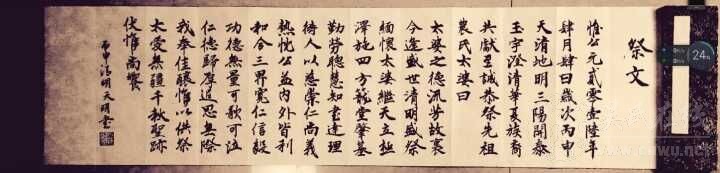 祭文
惟公元贰零壹陆年
肆月肆日岁次丙申
天清地明三陽開泰
玉宇澄清華夏族裔
共献至誠恭祭先祖
農氏太婆曰
太婆之德流芳故裏
今逢盛世清明盛祭
緬懷太婆繼天立極
澤施四方
勤勞聰慧知書達理
待人以慈崇仁尚義
熱忱公益内外皆利
和合三界寬仁信毅
功德無量可歌可泣
仁德歸厚追思無際
我奉佳釀惟以供祭
太愛無疆千秋聖跡
伏惟尚饗
丙申清明天明書
24